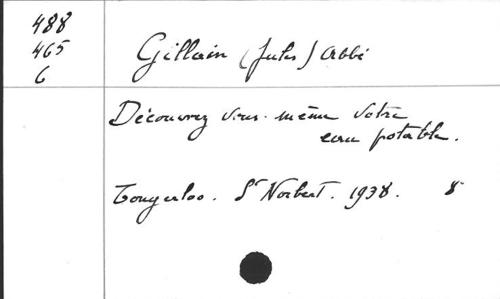 488
465
6
Gillain (Jules) Abbé
Découvrez vous-même votre
eau potable.
Tongerloo. St Norbert. 1938. 8°